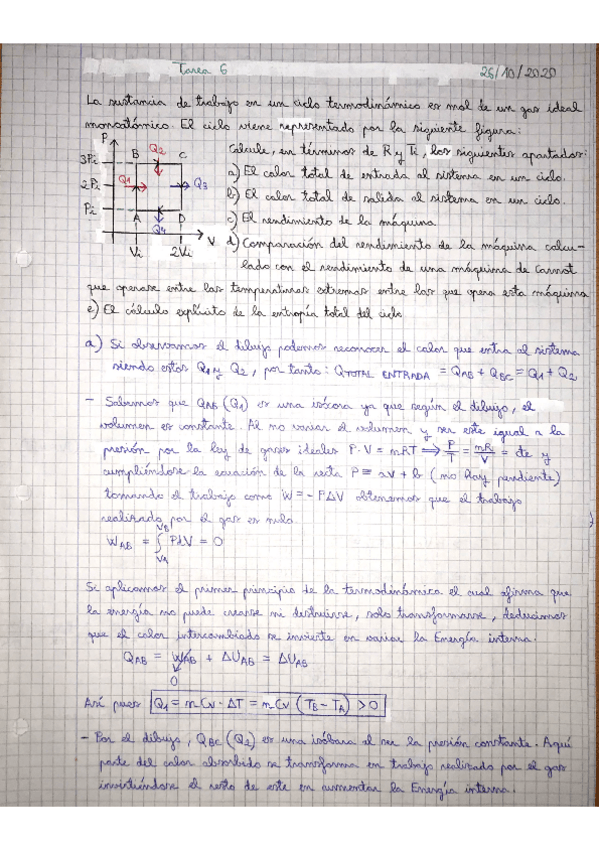 Tarea 6
26/10/2020
La sustancia de trabajo en un ciclo termodinámico es mol de un gas ideal
monoatómico. El ciclo viene representado por la siguiente figura:
P
3Pi
2Pi
Pi
B
C
A
D
Q2
Q1
Q3
Q4
Vi
2Vi
V
Calcule, en términos de R y Ti, los siguientes apartados:
a) El calor total de entrada al sistema en un ciclo.
b) El calor total de salida al sistema en un ciclo.
c) El rendimiento de la máquina
d) Comparación del rendimiento de la máquina calcu-
lado con el rendimiento de una máquina de Carnot
que operase entre las temperaturas extremas entre las que opera esta máquina
e) El cálculo explícito de la entropía total del ciclo
a) Si observamos el dibujo podemos reconocer el calor que entra al sistema
siendo estos Q1 y Q2, por tanto: QTOTAL ENTRADA = QAB + QBC = Q1 + Q2
- Sabemos que QAB (Q1) es una isócora ya que según el dibujo, el
volumen es constante. Al no variar el volumen y ser este igual a la
presión por la ley de gases ideales P·V = nRT ⟹ P/T = nR/V = cte y
cumpliéndose la ecuación de la recta P = aV + b (no hay pendiente)
tomando el trabajo como W = - PΔV obtenemos que el trabajo
realizado por el gas es nulo.
WAB = ∫VA VB PdV = 0
Si aplicamos el primer principio de la termodinámica el cual afirma que
la energía no puede crearse ni destruirse, solo transformarse, deducimos
que el calor intercambiado se invierte en variar la Energía interna.
QAB = WAB + ΔUAB = ΔUAB
0
Así pues Q1 = nCv · ΔT = nCv (TB - TA) > 0
- Por el dibujo, QBC (Q2) es una isóbara al ser la presión constante. Aquí
parte del calor absorbido se transforma en trabajo realizado por el gas
invirtiéndose el resto de este en aumentar la Energía interna.